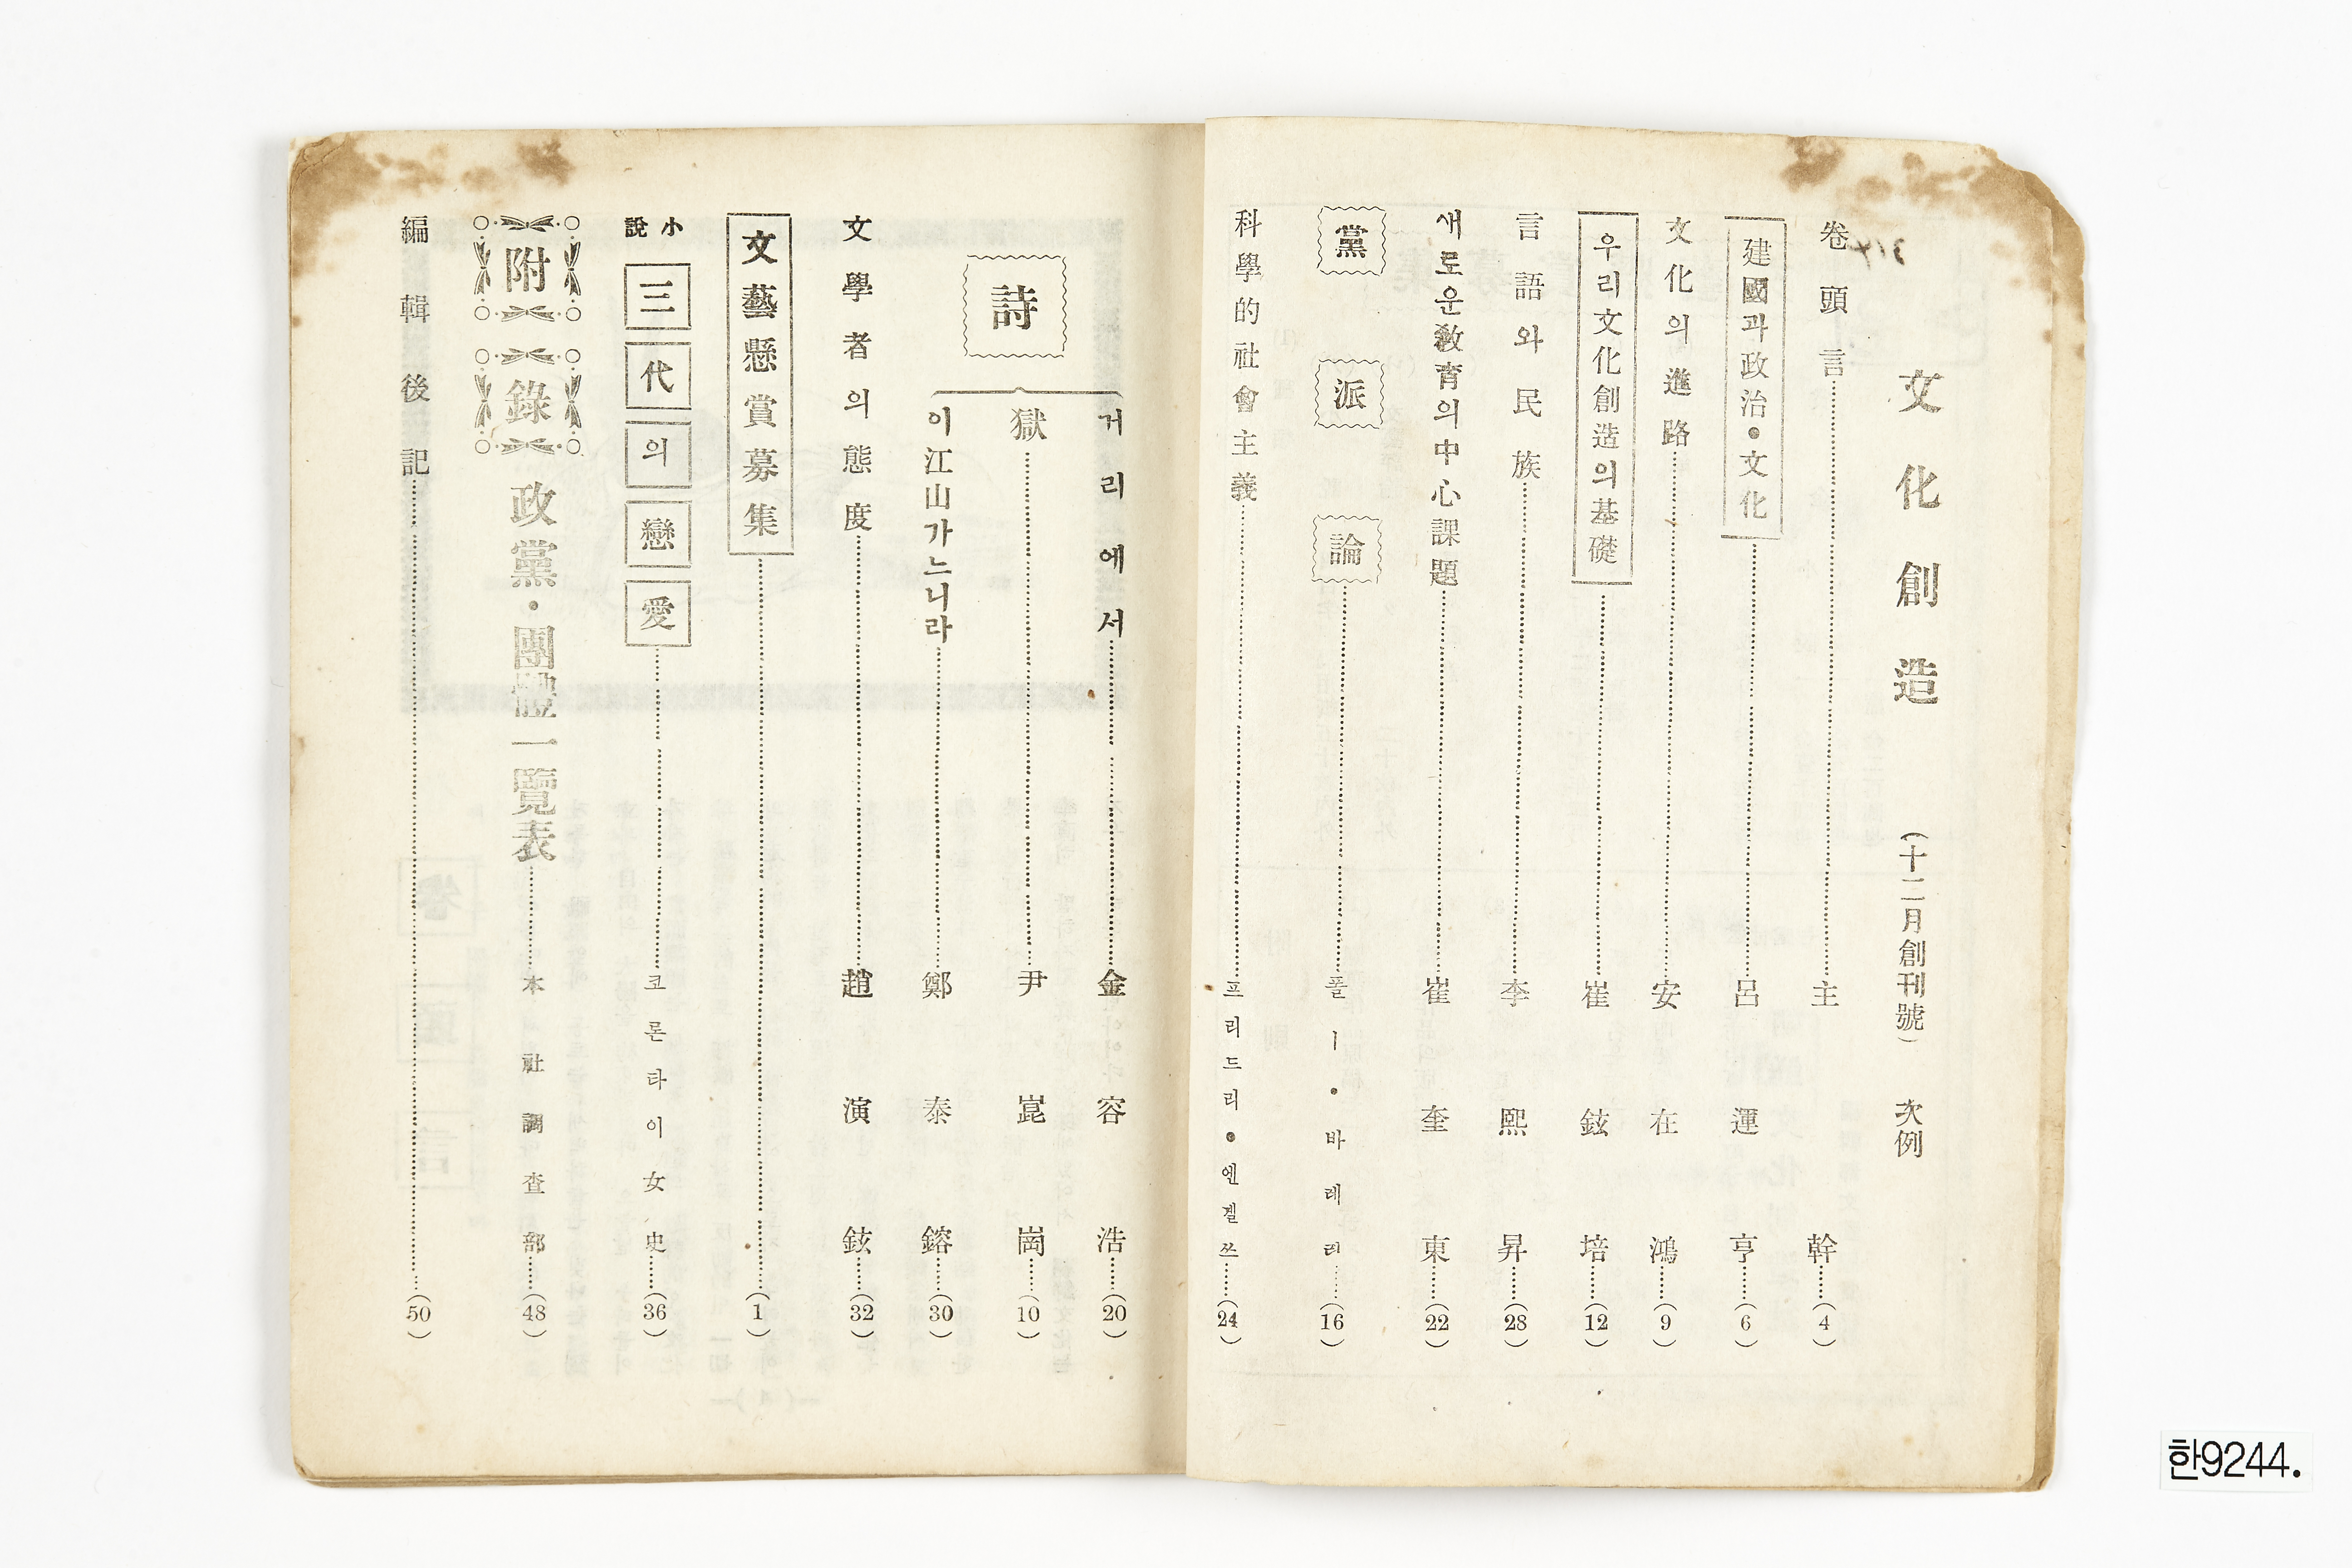 文化創造 (十二月創刊號) 次例
卷頭言 主幹 (4)
建國과政治·文化 呂運亨 (6)
文化의進路 安在鴻 (9)
우리文化創造의基礎 崔鉉培 (12)
言語와民族 李熙昇 (28)
새로운敎育의中心課題 崔奎東 (22)
黨派論 폴ㅣ·바레레 (16)
科學的社會主義 프리드리·엔겔쓰 (24)
詩
거리에서 金容浩 (20)
獄 尹崑崗 (10)
이江山가느니라 鄭泰鎔 (30)
文學者의態度 趙演鉉 (32)
文藝懸賞募集 (1)
小說 三代의戀愛 코론타이女史 (36)
附錄 政黨·團體一覽表 本社調査部 (48)
編輯後記 (50)
한9244.